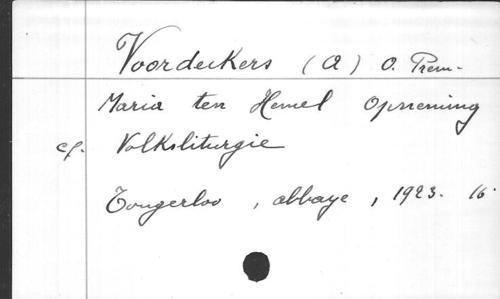 Voordeckers (A) O. Prem.
Maria ten Hemel Opneming
cf. Volksliturgie
Tongerloo, abbaye, 1923. 16°